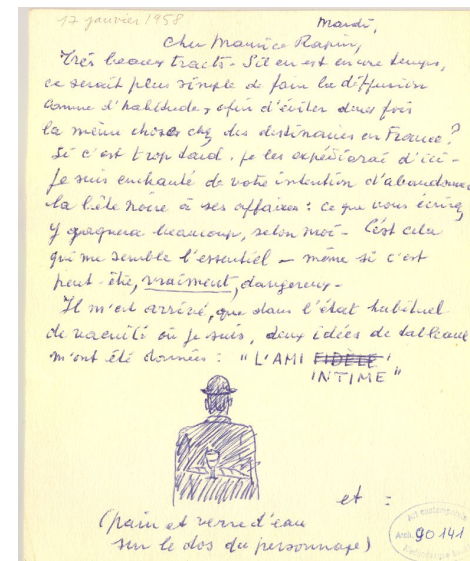 17 janvier 1958
Mardi,
Cher Maurice Rapin,
Très beaux tracts - S'il en est encore temps,
ce serait plus simple de faire la diffusion
comme d'habitude, afin d'éviter deux fois
la même chose chez des destinaires en France?
Si c'est trop tard, je les expédierai d'ici -
Je suis enchanté de votre intention d'abandonner
la bête noire à ses affaires : ce que vous écrirez
y gagnera beaucoup, selon moi - C'est cela
qui me semble l'essentiel - même si c'est
peut-être, vraiment, dangereux -
Il m'est arrivé, que dans l'état habituel
de vacuité où je suis, deux idées de tableaux
m'ont été données : "L'AMI FIDÈLE"
INTIME"
et :
(pain et verre d'eau
sur le dos du personnage)
Art contemporain
Arch. 90 141